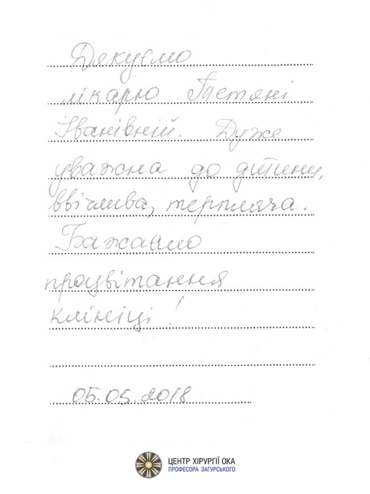 Дякуємо
лікарю Тетяні
Іванівній. Дуже
уважна до дитини,
ввічлива, терпляча.
Бажаємо
процвітання
клініці!
05.05.2018
ЦЕНТР ХІРУРГІЇ ОКА
ПРОФЕСОРА ЗАГУРСЬКОГО